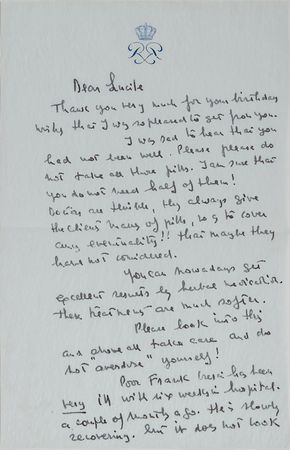 Dear Lucile
Thank you very much for your birthday
wishes that I was so pleased to get from you.
I was sad to hear that you
had not been well. Please please do
not take all those pills. I am sure that
you do not need half of them!
Doctors are terrible, they always give
the client many of pills, so as to cover
any eventuality!! that maybe they
have not considered.
You can nowadays get
excellent results by herbal medication.
these treatments are much softer.
Please look into this
and above all take care and do
not "overdose" yourself!
Poor Frank has been
very ill with six weeks in hospital.
a couple of months ago. He is slowly
recovering. but it does not look